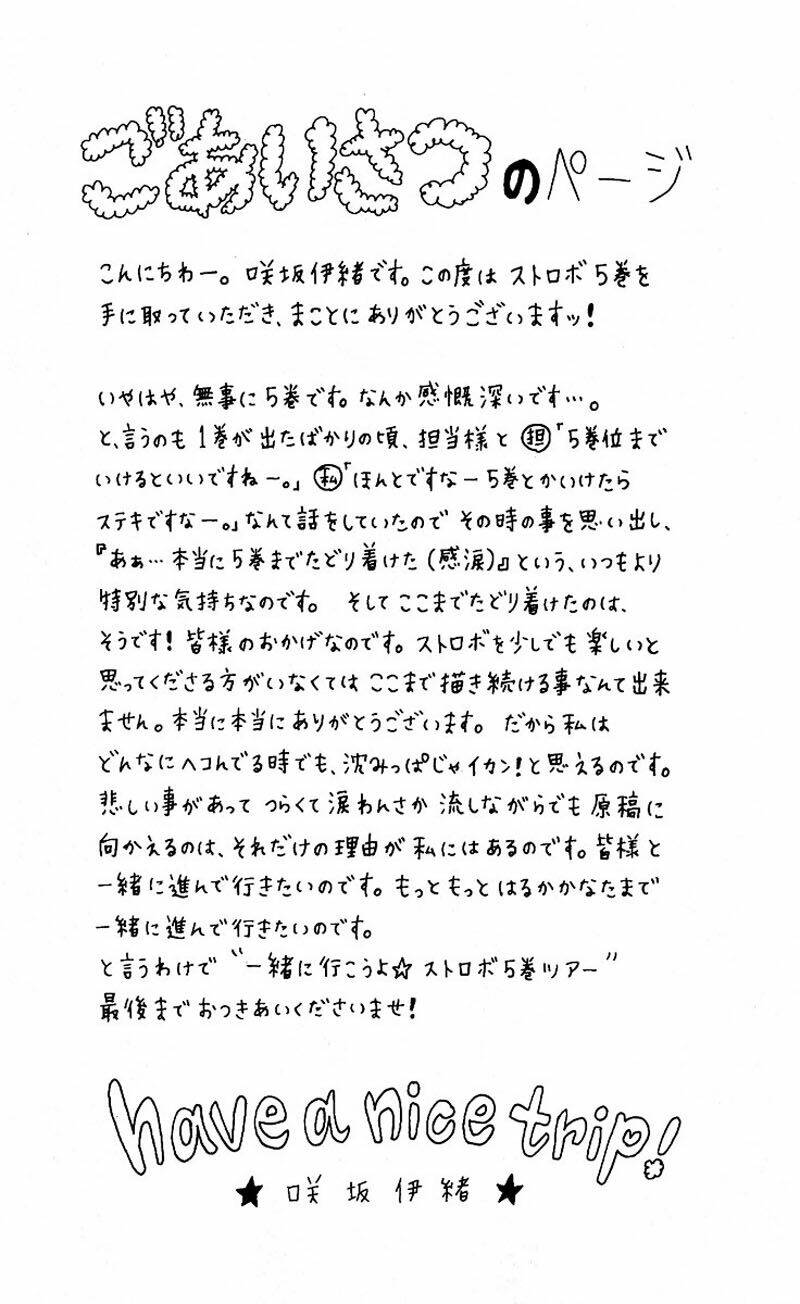 ごあいさつのページ
こんにちわー。咲坂伊緒です。この度は ストロボ5巻を
手に取っていただき、まことに ありがとうございますッ!
いやはや、無事に5巻です。なんか感慨深いです…。
と、言うのも 1巻が出たばかりの頃、担当様と ㊥「5巻位まで
いけるといいですねー。」 ㊙「ほんとですなー5巻とかいけたら
ステキですなー。」なんて話をしていたので その時の事を思い出し、
『あぁ…本当に5巻までたどり着けた(感涙)』という、いつもより
特別な気持ちなのです。 そして ここまでたどり着けたのは、
そうです! 皆様のおかげなのです。ストロボを少しでも 楽しいと
思ってくださる方がいなくては ここまで描き続ける事なんて出来
ません。本当に本当にありがとうございます。 だから私は
どんなにヘコんでる時でも、沈みっぱじゃイカン!と思えるのです。
悲しい事があって つらくて涙わんさか 流しながらでも 原稿に
向かえるのは、それだけの理由が私にはあるのです。皆様と
一緒に進んで行きたいのです。もっともっと はるかかなたまで
一緒に進んで行きたいのです。
と言うわけで “一緒に行こうよ☆ ストロボ5巻ツアー”
最後まで おつきあいくださいませ!
have a nice trip!
★ 咲坂伊緒 ★